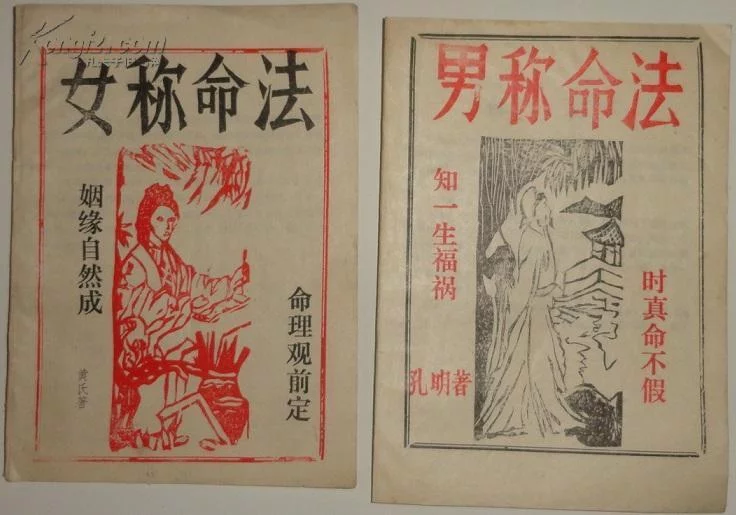 Kongfz.com
孔夫子旧书网
女称命法
姻缘自然成
命理观前定
黄氏著
男称命法
知一生福祸
时真命不假
孔明著